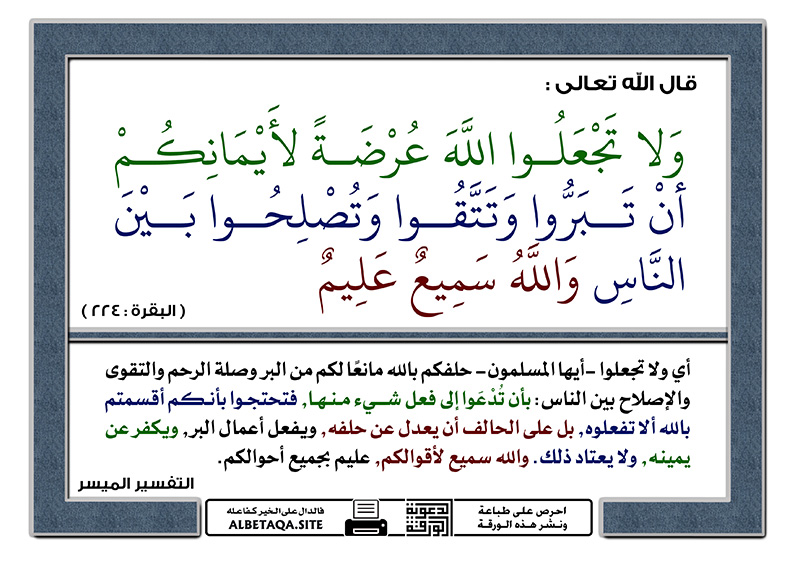 قال الله تعالى :
وَلا تَجْعَلُوا اللَّهَ عُرْضَةً لأَيْمَانِكُمْ
أَنْ تَبَرُّوا وَتَتَّقُوا وَتُصْلِحُوا بَيْنَ
النَّاسِ وَاللَّهُ سَمِيعٌ عَلِيمٌ
( البقرة : ٢٢٤ )
أي ولا تجعلوا -أيها المسلمون- حلفكم بالله مانعًا لكم من البر وصلة الرحم والتقوى
والإصلاح بين الناس: بأن تُدْعَوا إلى فعل شيء منها, فتحتجوا بأنكم أقسمتم
بالله ألا تفعلوه, بل على الحالف أن يعدل عن حلفه, ويفعل أعمال البر, ويكفر عن
يمينه, ولا يعتاد ذلك. والله سميع لأقوالكم, عليم بجميع أحوالكم.
التفسير الميسر
احرص على طباعة
ونشر هذه الورقة
الدعوية
الورقة
فالدال على الخير كفاعله
ALBETAQA.SITE